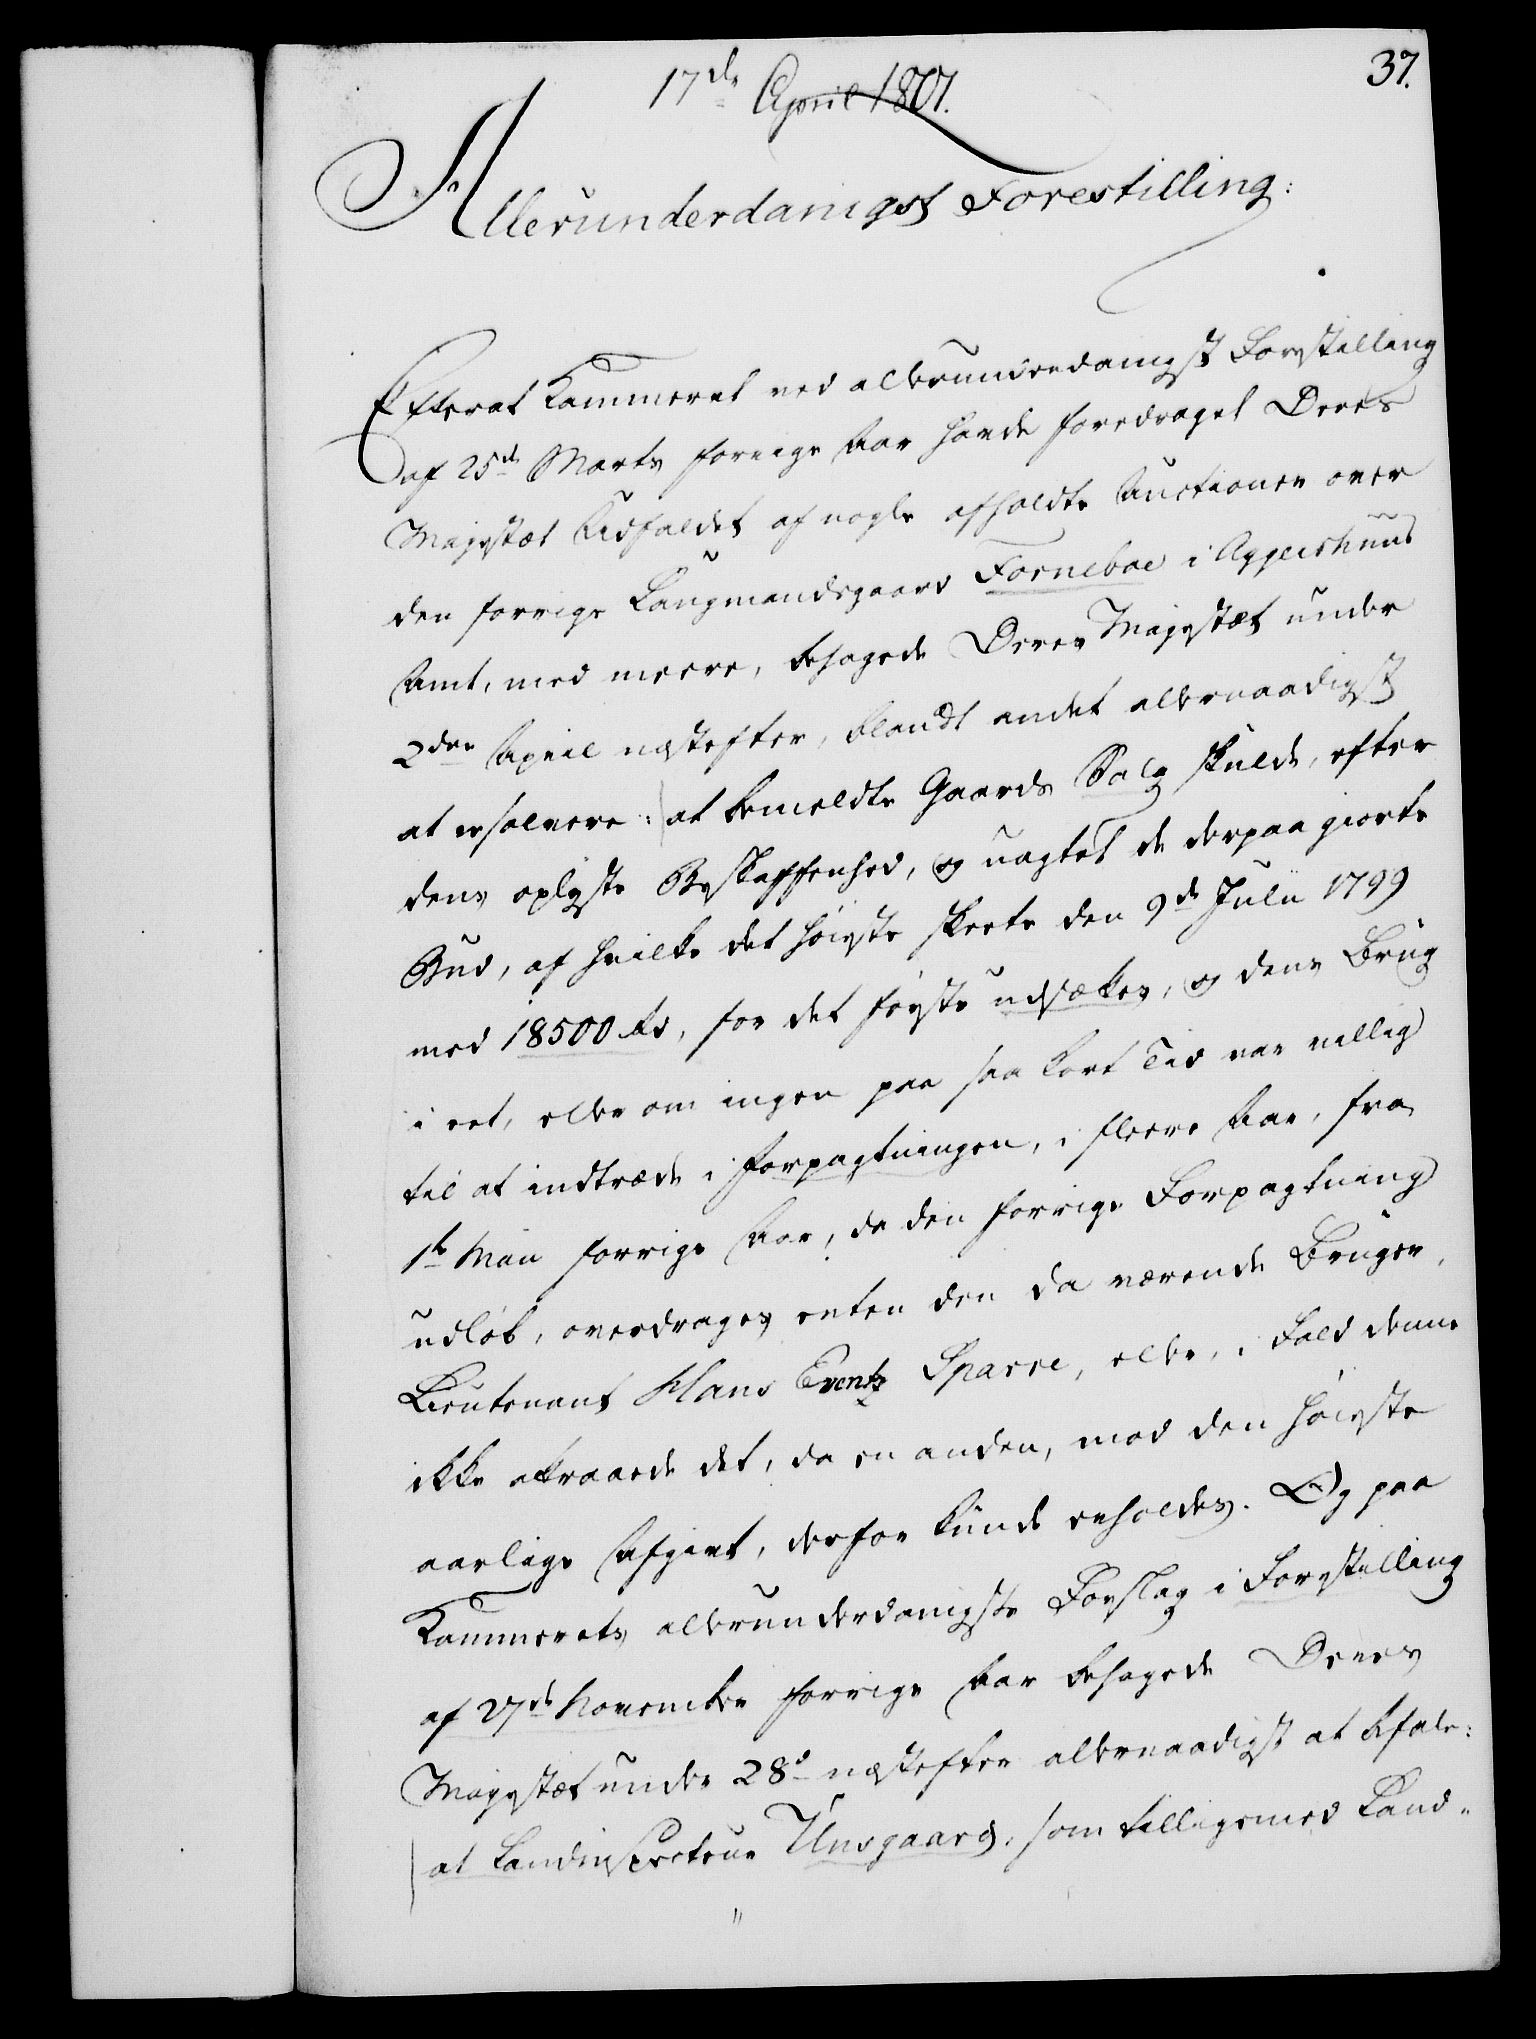 37.
17de April 1801.
Allerunderdanigst Forestilling:
Efterat Kammeret ved allerunderdanigst Forestilling
af 25de Marts forrige Aar havde foredraget Deres
Majestæt Udfaldet af nogle afholdte Auctioner over
den forrige Laugmandsgaard Forneboe i Aggershuus
Amt, med meere, behagede Deres Majestæt under
2den April næstefter, blandt andet allernaadigst
at resolvere: at bemeldte Gaards Salg skulde, efter
dens oplyste Beskaffenhed, og uagtet de derpaa giorte
Bud, af hvilke det høieste skeete den 9de Julii 1799
med 18500 rd, for det første udsættes, og dens Brug
i eet, eller om ingen paa saa kort Tid var villig
til at indtræde i Forpagtningen, i fleere Aar, fra
1te Maii forrige Aar, da den forrige Forpagtning
udløb, overdrages enten den da værende Bruger,
Lieutenant Hans Eventz Sparre, eller, i Fald denne
ikke attraaede det, da en anden, mod den høieste
aarlige Afgivt, derfor kunde erholdes. Og paa
Kammerets allerunderdanigste Forslag i Forestilling
af 27de November forrige Aar behagede Deres
Majestæt under 28d næstefter allernaadigst at befale:
at Landinspecteur Unsgaard, som tilligemed Land-
"